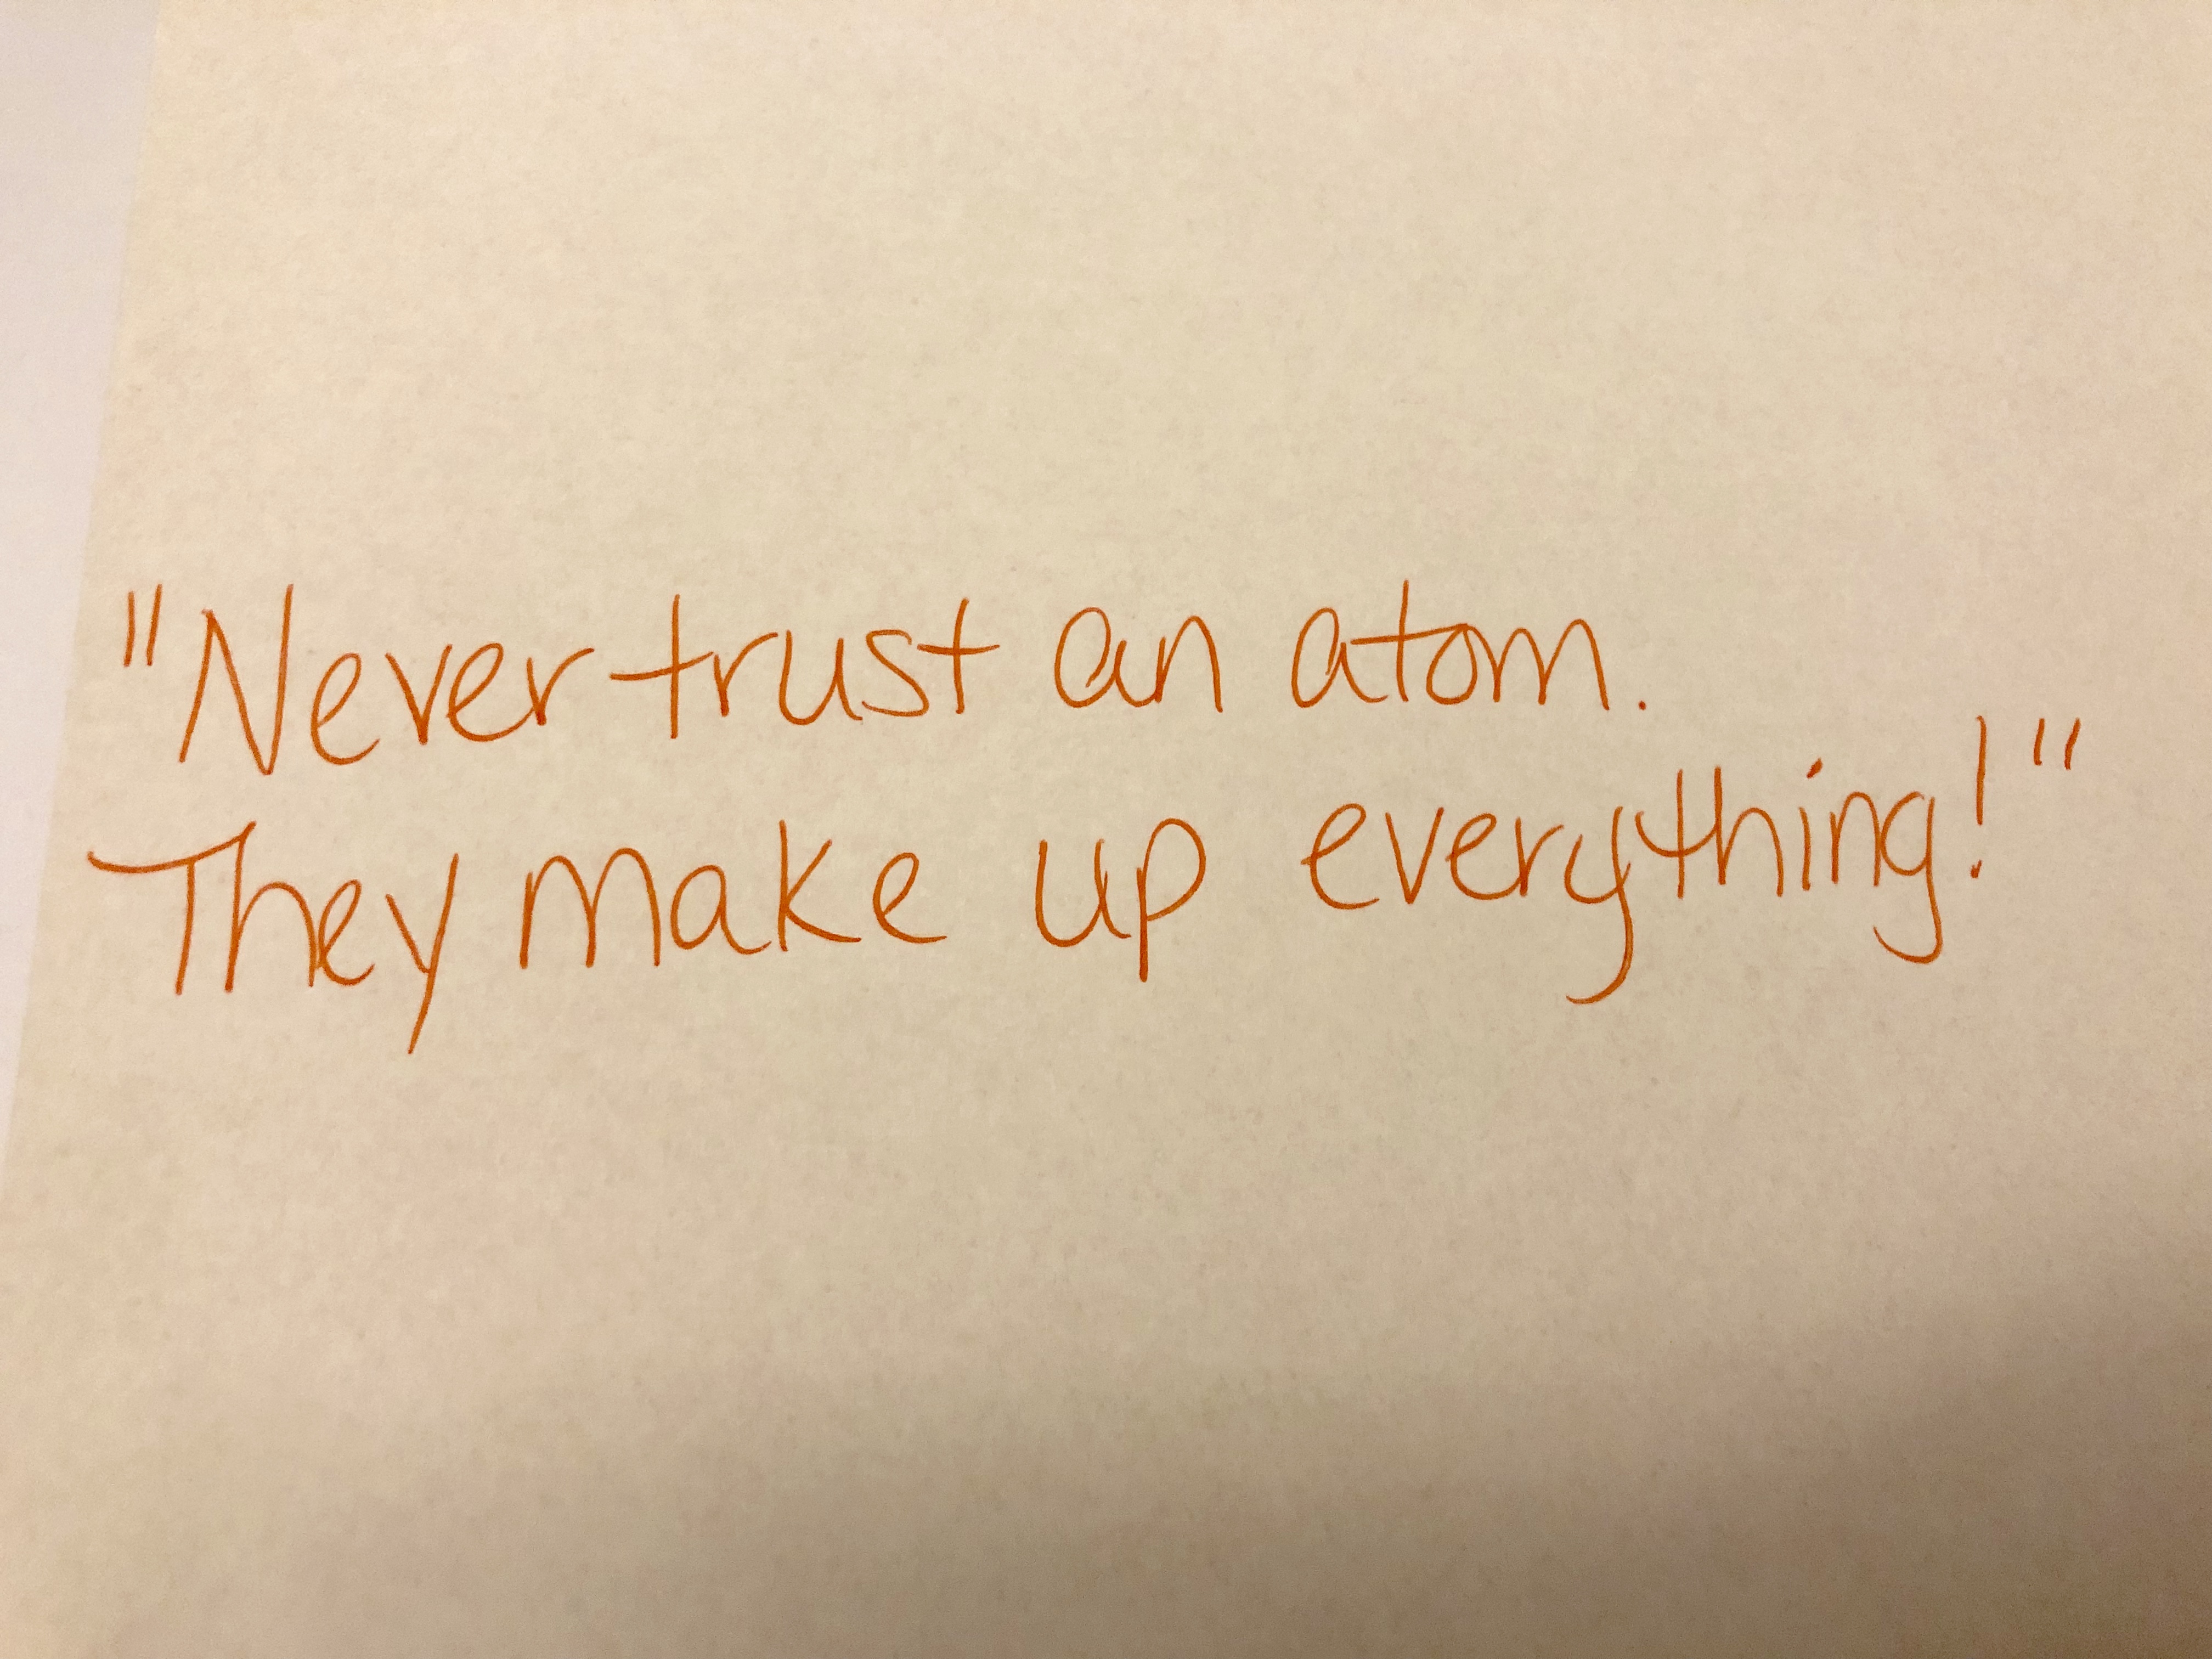 "Never trust an atom.
They make up everything!"